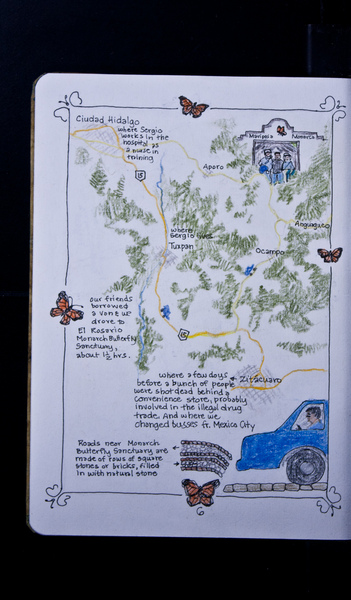 Ciudad Hidalgo
where Sergio
works in the
hospital as
a nurse in
training
Mariposa Monarca
Aporo
15
Angangueo
where
Sergio
Tuxpan
Ocampo
our friends
borrowed
a van & we
drove to
El Rosario
Monarch Butterfly
Sanctuary,
about 1½ hrs.
15
Zitácuaro
where a few days
before a bunch of people
were shot dead behind a
convenience store, probably
involved in the illegal drug
trade. And where we
changed busses fr. Mexico City
Roads near Monarch
Butterfly Sanctuary are
made of rows of square
stones or bricks, filled
in with natural stone
6